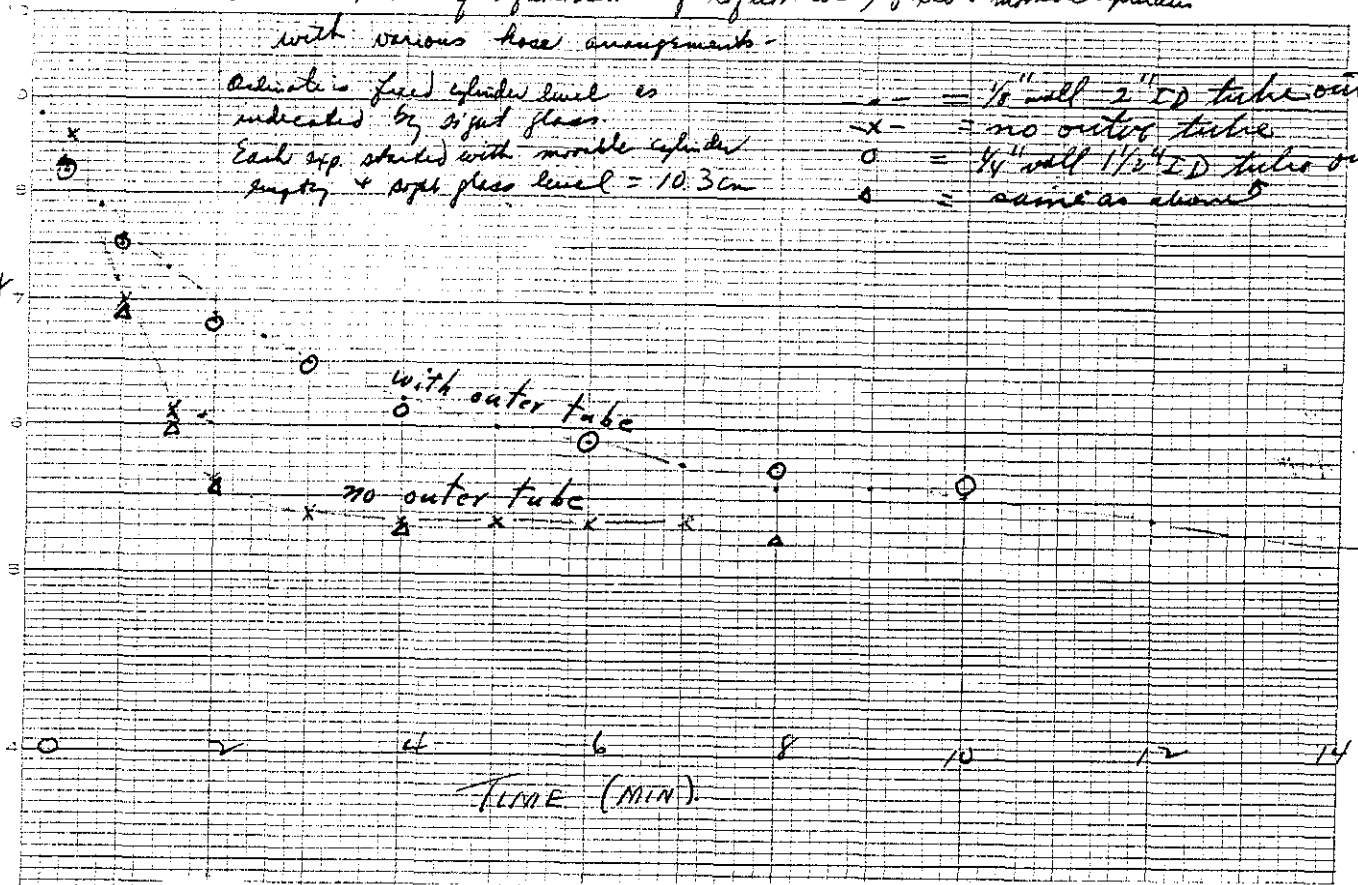 with various hose arrangements-
Ordinate is fixed cylinder level as
indicated by sight glass.
Each exp. started with movable cylinder
empty + sight glass level = 10.3 cm
.- = 1/8" wall 2" ID tube
-x- = no outer tube
o = 1/4" wall 1 1/2" ID tube
Δ = same as above
7
6
with outer tube
no outer tube
0 2 4 6 8 10 12 14
TIME (MIN).